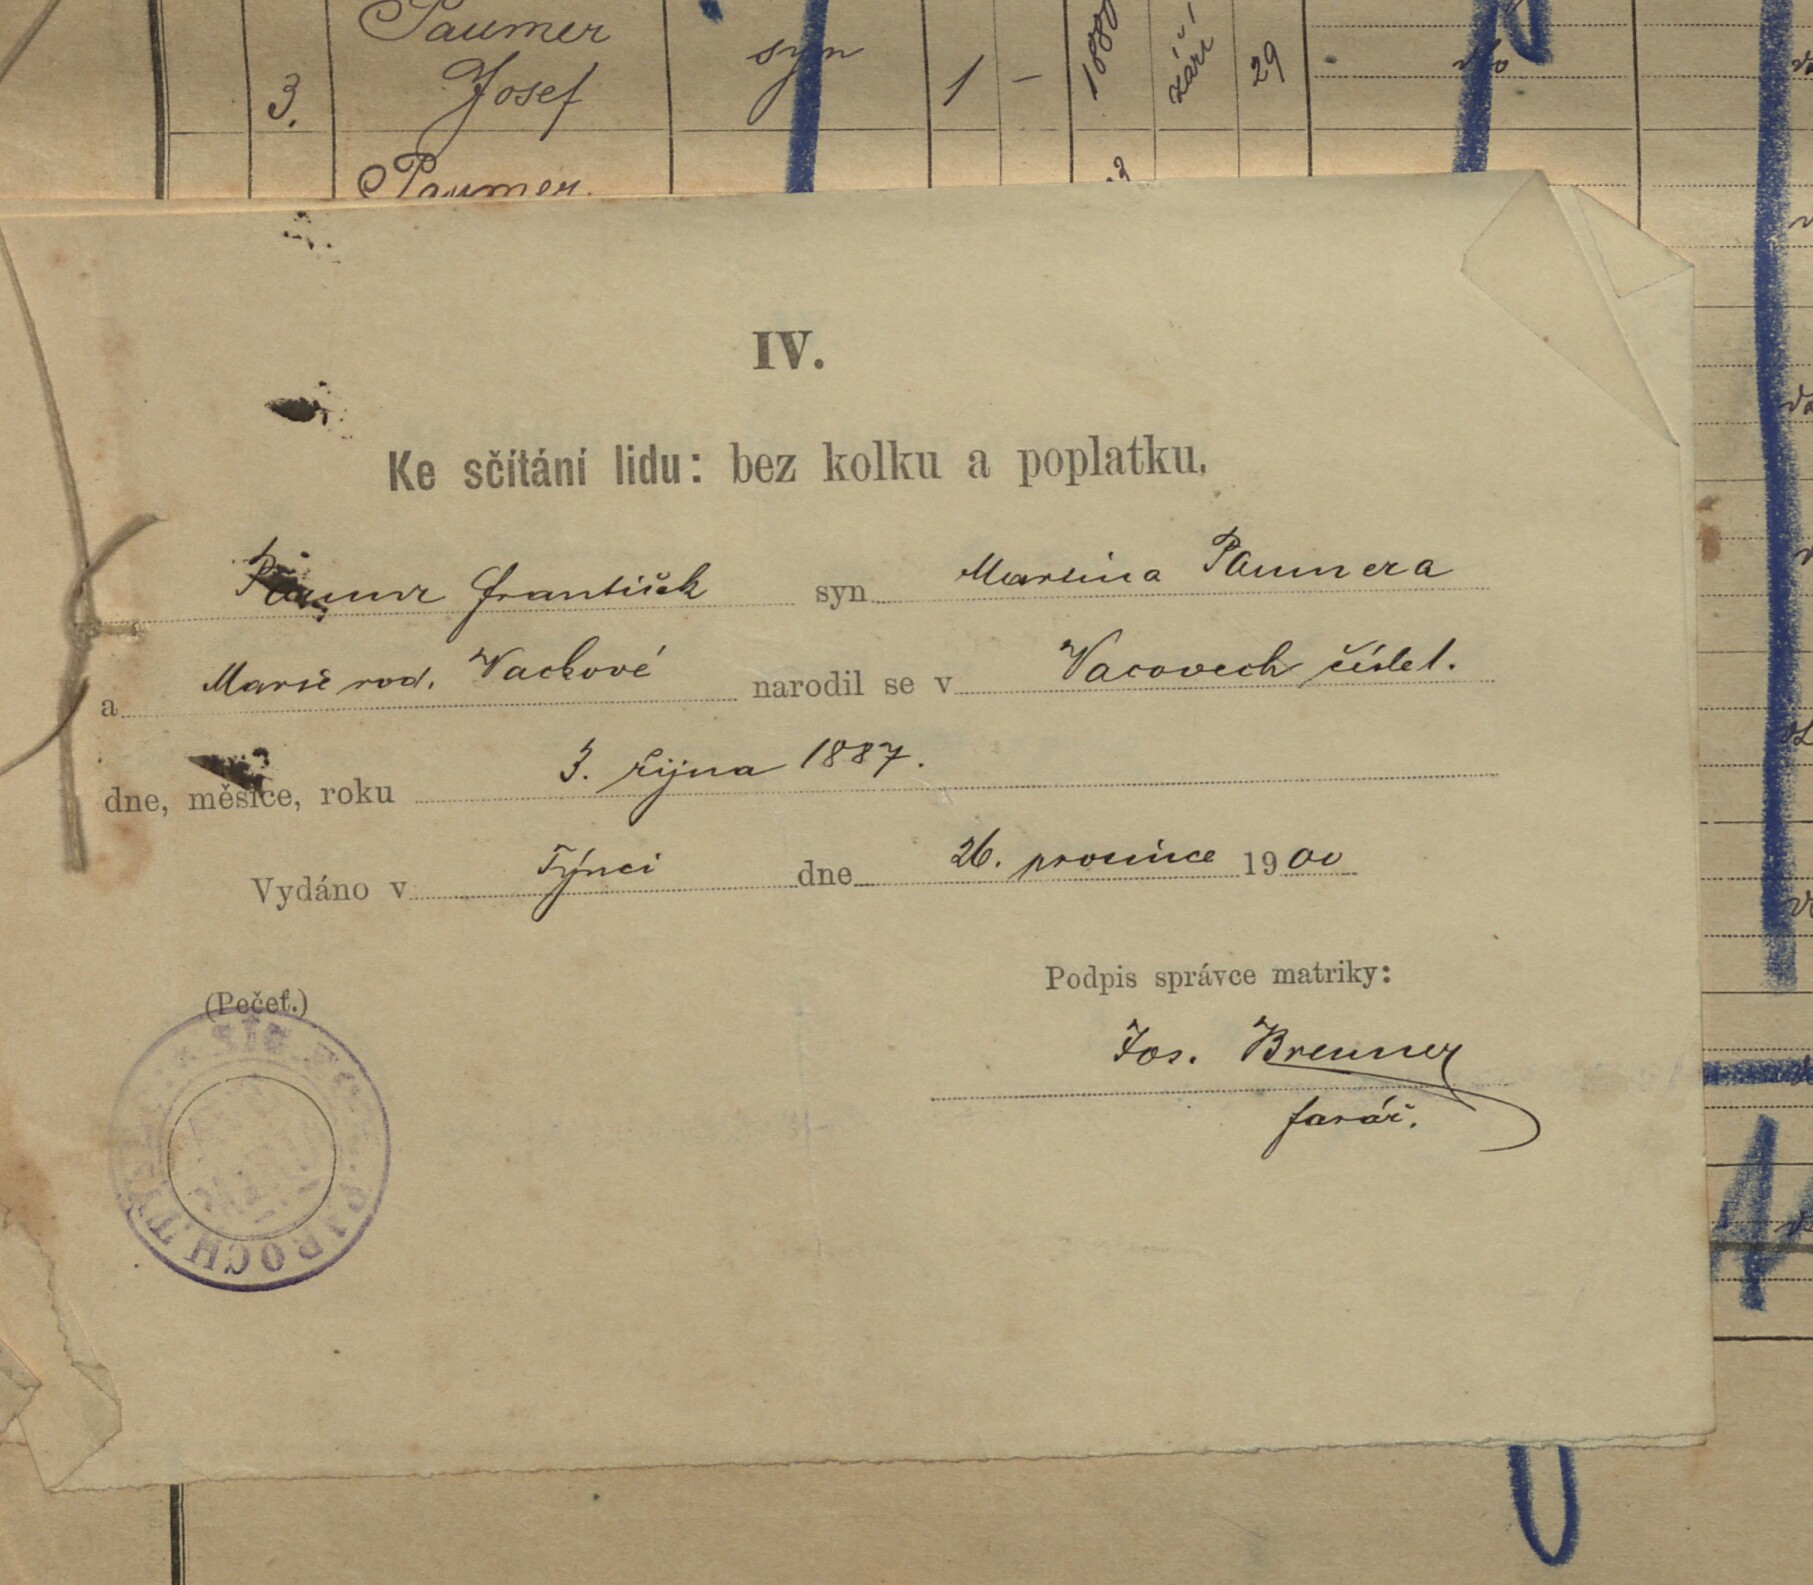 Paumer
3. Josef syn 1 – 1880 září 29 dto
Paumer
IV.
Ke sčítání lidu: bez kolku a poplatku.
Paumr František syn Martina Paumera
a Marie rod. Vackové narodil se v Vacovech čísle 1.
dne, měsíce, roku 3. října 1887.
Vydáno v Týnci dne 26. prosince 1900
Podpis správce matriky:
(Pečeť.)
Jos. Brenner
farář.
PAROCH. TYN